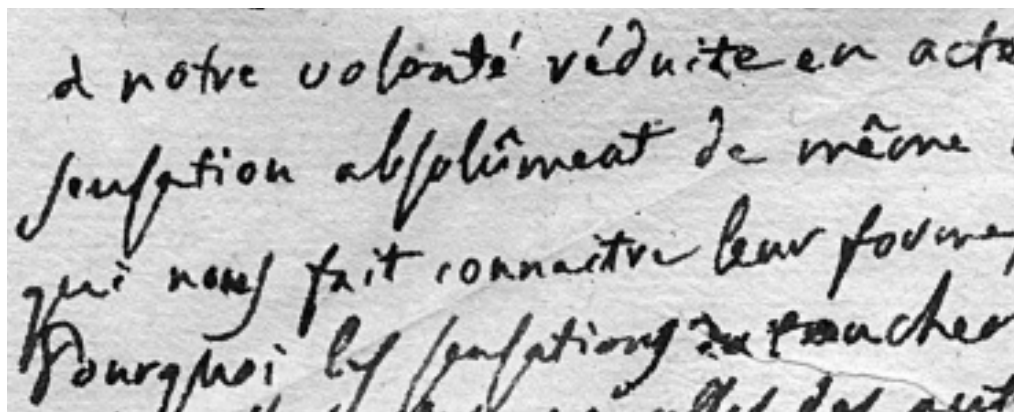 à notre volonté réduite en acte
sensation absolûment de même
qui nous fait connaitre leur forme,
Pourquoi les sensations du toucher
des